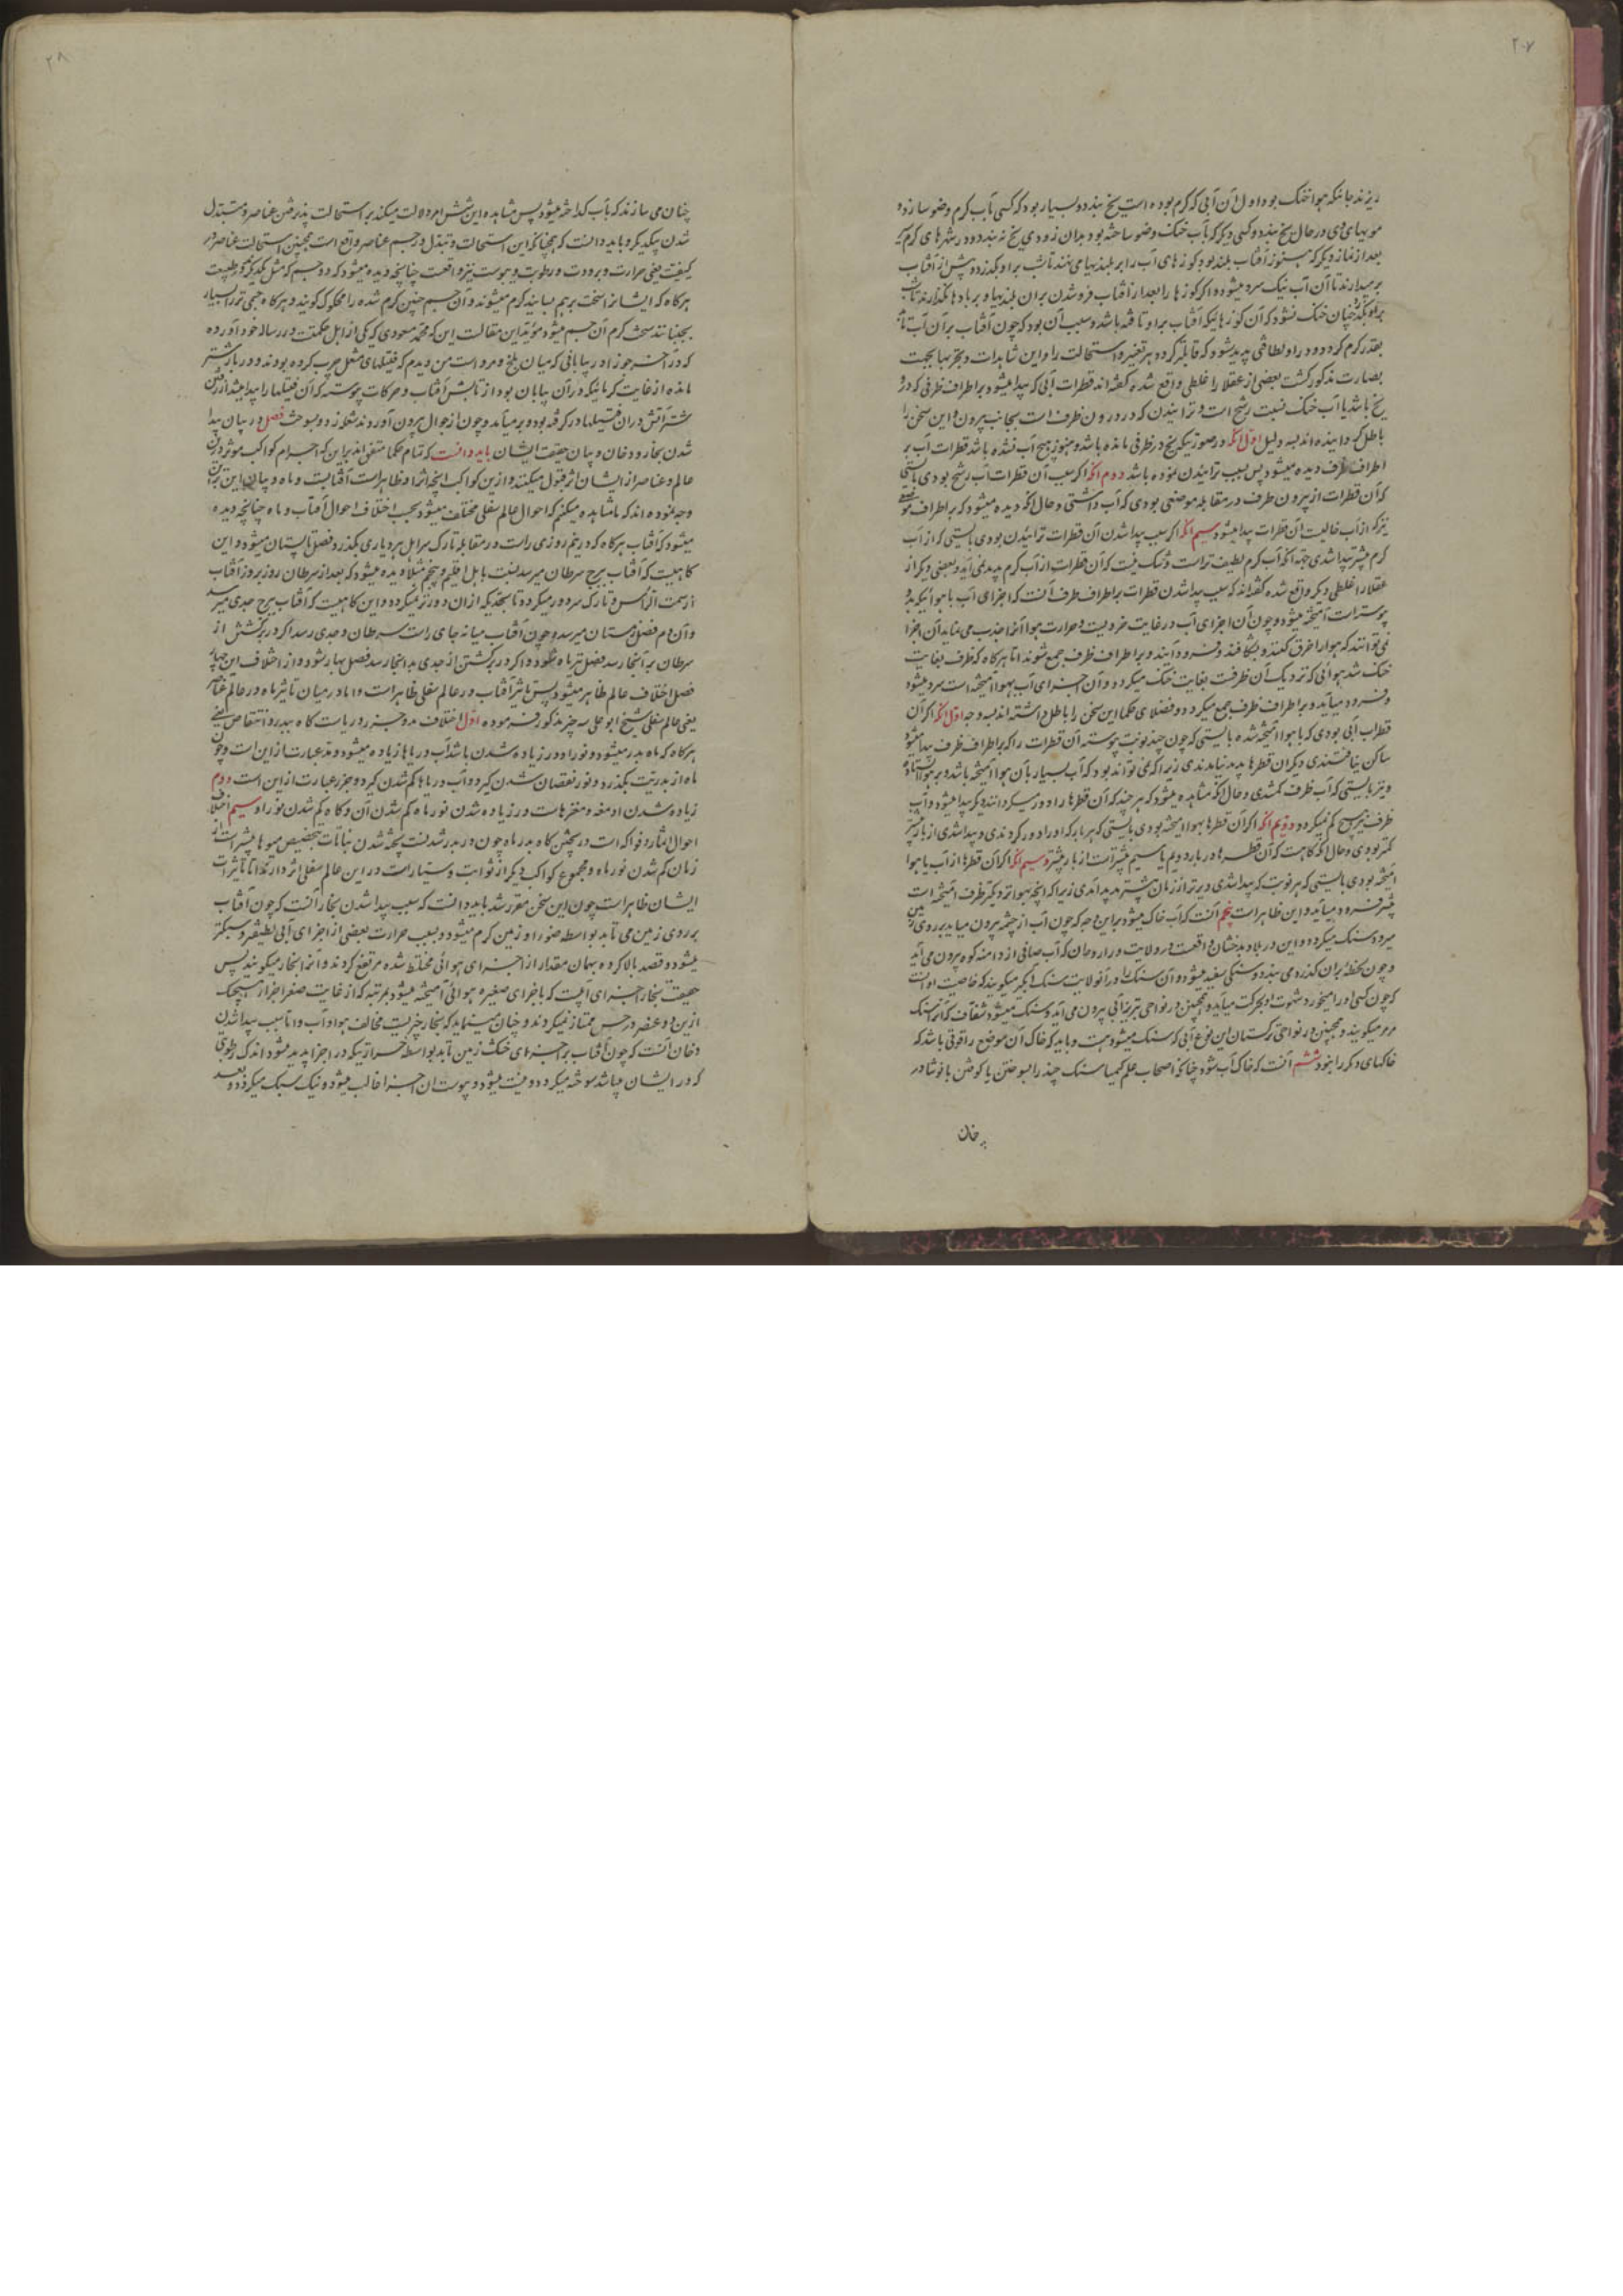 ۲۰۷
ریزند جائیکه هوا خنک بود اول آن آبی که گرم بوده است یخ بندد و بسیار بود که کسی بآب گرم وضو سازد و
مویهای وی در حال یخ بندد و کسی دیگر که بآب خنک وضو ساخته بود بدان زودی یخ نه بندد و در شهرهای گرم سیر
بعد از نماز دیگر که هنوز آفتاب بلند بود کوزهای آب را بر بلندیها می نهند تا شب برو بگذرد و پیش از آفتاب
بر میدارند تا آن آب نیک سرد میشود و اگر کوزها را بعد از آفتاب فرو شدن بران بلندیها و بر بادها بگذارند تا شب
برو بگذرد چنان خنک نشود که آن کوزهائیکه آفتاب براو تافته باشد و سبب آن بود که چون آفتاب بر آن آب تابد
بقدر گرم گردد و در او لطافتی پدید شود که قابلتر گردد بر تغیر و استحالت را و این مشاهدات و تجربها بحجت
بصارت مذکور گشت بعضی از عقلا را غلطی واقع شده گفته اند قطرات آبی که پیدا میشود بر اطراف ظرفی که در و
یخ باشد یا آب خنک نسبت رشح است و ترابیدن که در درون ظرف است بجانب بیرون و این سخن را
باطل گردانیده اند بسه دلیل اول آنکه در صورتیکه یخ در ظرفی مانده باشد و هنوز هیچ آب نشده باشد قطرات آب بر
اطراف ظرف دیده میشود پس بسبب ترابیدن نبوده باشد دوم آنکه اگر سبب آن قطرات آب رشح بودی بایستی
که آن قطرات از بیرون ظرف در مقابله موضعی بودی که آب داشتی و حال آنکه دیده میشود که بر اطراف موضعی
نیز که از آب خالیست آن قطرات پیدا میشود سیم آنکه اگر سبب پیدا شدن آن قطرات ترابیدن بودی بایستی که از آب
گرم بیشتر پیدا شدی جهة آنکه آب گرم لطیف تر است و شک نیست که آن قطرات از آب گرم پدید نمی آید و بعضی دیگر از
عقلا را غلطی دیگر واقع شده گفته اند که سبب پیدا شدن قطرات بر اطراف ظرف آنست که اجزای آب با هوائیکه بدو
پیوسته است آمیخته میشود و چون آن اجزای آب در غایت خردیست و حرارت هوا آنرا جذب می نماید آن اجزا
نمی توانند که هوا را خرق کنند و بشکافند و فرود آیند و بر اطراف ظرف جمع شوند اما هرگاه که ظرف بغایت
خنک شد هوائی که نزدیک آن ظرفست بغایت خنک میگردد و آن اجزای آب بهوا آمیخته است سرد میشود
و فرود میآید و بر اطراف ظرف جمع میگردد و فضلای حکما این سخن را باطل داشته اند بسه وجه اول آنکه اگر آن
قطرات آبی بودی که با هوا آمیخته شده بایستی که چون چند نوبت پیوسته آن قطرات را که بر اطراف ظرف پیدا میشود
ظرف هیچ کم نمیگردد دویم آنکه اگر آن قطرها بهوا آمیخته بودی بایستی که هر بار که او را دور کردندی و پیدا شدی از بار پیشتر
کمتر بودی و حال آنکه گاه هست که آن قطرها در بار دویم یا سیم بیشتر است از بار پیشتر و سیم آنکه اگر آن قطرها از آب با هوا
آمیخته بودی بایستی که هر نوبت که پیدا شدی دیرتر از زمان پیشتر پدید آمدی زیرا که آنچه بهوا نزدیکتر ظرف آمیخته است
پیشتر فرود میآید و این ظاهر است پنجم آنست که آب خاک میشود براین وجه که چون آب از چشمه بیرون میاید بر روی زمین
میرود سنگ میگردد و این در بلاد بدخشان واقعست و در ولایت و راروجان که آب صافی از دامنه کوه بیرون می آید
و چون لحظه بران گذرد می بندد و سنگی سفید میشود و آن سنگ را در آنولایت سنگ میگویند که خاصیت او آنست
که چون کسی او را میخورد شهوت او بحرکت میآید و همچنین در نواحی تبریز آبی بیرون می آید و سنگ میشود شفاف که آنرا سنگ
مرمر میگویند و همچنین در نواحی ترکستان این نوع آبی که سنگ میشود هست و باید که خاک آن موضع را قوتی باشد که
خاکهای دیگر را نبود ششم آنست که خاک آب شود چنانکه اصحاب علم کیمیا سنگ چند را بسوختن یا کوفتن با نوشادر
چنان
۲۸
چنان می سازند که بآب گداخته میشود پس مشاهده این شش امر دلالت میکند بر استحالت پذیرفتن عناصر و متبدل
شدن بیکدیگر و باید دانست که همچنانکه این استحالت و تبدل در جسم عناصر واقع است همچنین استحالت عناصر در
کیفیت یعنی حرارت و برودت و رطوبت و یبوست نیز واقعست چنانچه دیده میشود که دو جسم که مثل یکدیگرند در طبیعت
هرگاه که ایشانرا سخت برهم بسایند گرم میشوند و آن جسم چنین گرم شده را محکوک گویند و هرگاه جسمی تر را بسیار
بجنبانند سخت گرم آن جسم میشود مؤید این مقالت این که محمد مسعودی که یکی از اهل حکمتست در رساله خود آورده
که در آخر جوزا در بیابانی که میان بلخ و مرو است من دیدم که فتیلهای مشعل چرب کرده بودند و در بار شتر
مانده از غایت گرمائیکه در آن بیابان بود از تابش آفتاب و حرکات پیوسته که آن فتیلها را پیدا میشد از رفتن
شتر آتش دران فتیلها درگرفته بود و بر میآمد و چون از جوال بیرون آوردند شعله زد و بسوخت فصل در بیان پیدا
شدن بخار و دخان و بیان حقیقت ایشان باید دانست که تمام حکما متفق اند براین که اجرام کواکب موثر در این
عالم و عناصر از ایشان اثر قبول میکنند و ازین کواکب آنچه اثر او ظاهر است آفتابست و ماه و بیان این
وجه نموده اند که ما مشاهده میکنیم که احوال عالم سفلی مختلف میشود بحسب اختلاف احوال آفتاب و ماه چنانچه دیده
میشود که آفتاب هرگاه که در نیم روزی راست در مقابله تارک سر اهل هر دیاری بگذرد فصل تابستان میشود و این
گاهیست که آفتاب ببرج سرطان میرسد نسبت باهل اقلیم پنجم مثلا و دیده میشود که بعد از سرطان روز بروز آفتاب
از سمت الرأس و تارک سر دور میگردد تا بحدیکه ازان دورتر نمیگردد و این گاهیست که آفتاب ببرج جدی میرسد
و آن دم فصل زمستان میرسد و چون آفتاب میانه جای راست سرطان و جدی رسد اگر در برگشتن از
سرطان بدانجا رسد فصل تیرماه شود و اگر در برگشتن از جدی بدانجا رسد فصل بهار شود و از اختلاف این چهار
فصل اختلاف عالم ظاهر میشود پس تاثیر آفتاب در عالم سفلی ظاهر است و اما در بیان تاثیر ماه در عالم عناصر
یعنی عالم سفلی شیخ ابو علی سه چیز مذکور فرموده اول اختلاف مد و جزر دریاست گاه بیدر و انتقاص یعنی
هرگاه که ماه بدر میشود و نور او در زیاده شدن باشد آب دریاها زیاده میشود و مد عبارت از این است و چون
ماه از بدریت بگذرد و نور نقصان شدن گیرد و آب دریاها کم شدن گیرد و جزر عبارت از این است دوم
زیاده شدن ادمغه و مغزهاست در زیاده شدن نور ماه و کم شدن آن و گاه کم شدن نور او سیم اختلاف
احوال اثمار و فواکه است در پختن گاه بدر ماه چون در بدر شدنست پخته شدن نباتات بتخصیص میوها بیشتر است از
زمان کم شدن نور ماه و مجموع کواکب دیگر از ثوابت و سیارات در این عالم سفلی اثر دارند اما تاثیرات
ایشان ظاهر است چون این سخن مقرر شد باید دانست که سبب پیدا شدن بخار آنست که چون آفتاب
بر روی زمین می تابد بواسطه ضوء او زمین گرم میشود و بسبب حرارت بعضی از اجزای آبی لطیفتر و سبکتر
میشود و قصد بالا کرده بهمان مقدار از اجزای هوائی مختلط شده مرتفع گردند و آنرا بخار میگویند پس
حقیقت بخار اجزای آبیست که باجزای صغیره هوائی آمیخته میشود بمرتبه که از غایت صغر اجزا هیچیک
ازین دو عنصر در حس ممتاز نمیگردند و چنان مینماید که بخار چیزیست مخالف هوا و آب و اما سبب پیدا شدن
دخان آنست که چون آفتاب بر اجزای خشک زمین تابد بواسطه حرارتیکه در اجزا پدید میشود اندک رطوبتی
که در ایشان میباشد سوخته میگردد و نیست میشود و یبوست آن اجزا غالب میشود و نیک سبک میگردد و بعد